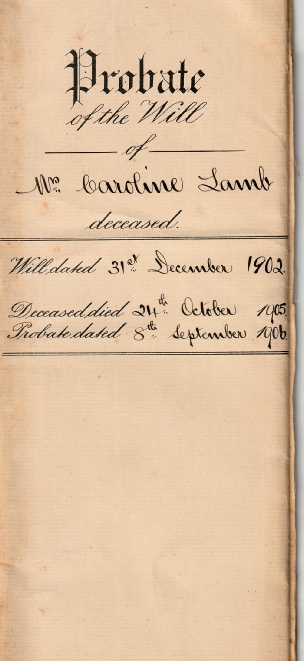 Probate
of the Will
of
Mrs. Caroline Lamb
deceased.
Will, dated 31st December 1902.
Deceased, died 24th October 1905.
Probate, dated 8th September 1906.